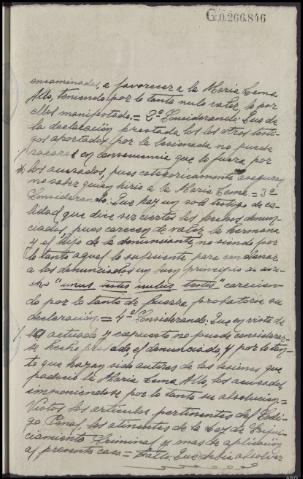 G.0.266.846
encaminadas, a favorecer a la Maria Lema
Allo, teniendo por lo tanto nulo valor lo por
ellos manifestado.= 2º Considerando: Que de
la declaración prestada los otros testi-
gos aportados por la lesionada no puede
en consecuencia que lo fuera por
los acusados, pues categoricamente aseguran
no saber quien hirio a la Maria Lema.= 3º
Considerando: Que hay un solo testigo de ca-
lidad que dice ser ciertos los hechos denun-
ciados, pues carecen de valor la hermana
y el hijo de la denunciante, no siendo por
lo tanto aquel lo suficiente para condenar
a los denunciados un buen principio es anti-
"unus testis nullus testis" carecien-
do por lo tanto de fuerza probatoria su
declaracion.= 4º Considerando: Que en vista de
lo actuado y expuesto no puede considerar-
se hecho probado el denunciado, y por lo tan-
to que hayan sido autores de las lesiones que
padecio la Maria Lema Allo, los acusados,
imponiendose por lo tanto su absolucion.=
Vistos los articulos pertinentes del Codi-
go Penal, los atinentes de la Ley de Enjui-
ciamiento Criminal y demas de aplicacion
al presente caso.= Fallo: Que debia absolver